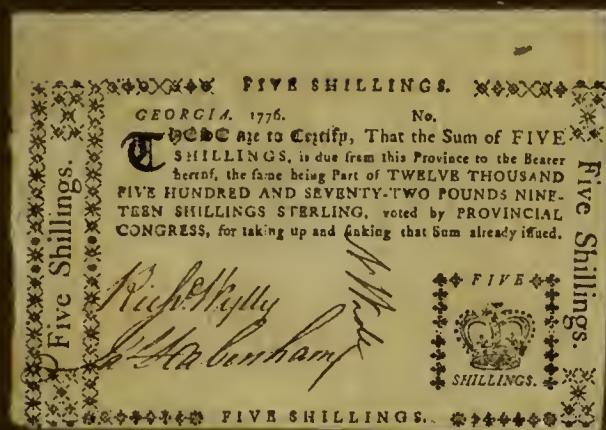 FIVE SHILLINGS.
GEORGIA. 1776. No.
THESE are to Certify, That the Sum of FIVE
SHILLINGS, is due from this Province to the Bearer
hereof, the same being Part of TWELVE THOUSAND
FIVE HUNDRED AND SEVENTY-TWO POUNDS NINE-
TEEN SHILLINGS STERLING, voted by PROVINCIAL
CONGRESS, for taking up and sinking that Sum already issued.
Five Shillings.
Five Shillings.
Richd Wylly
Habersham
FIVE
SHILLINGS.
FIVE SHILLINGS.